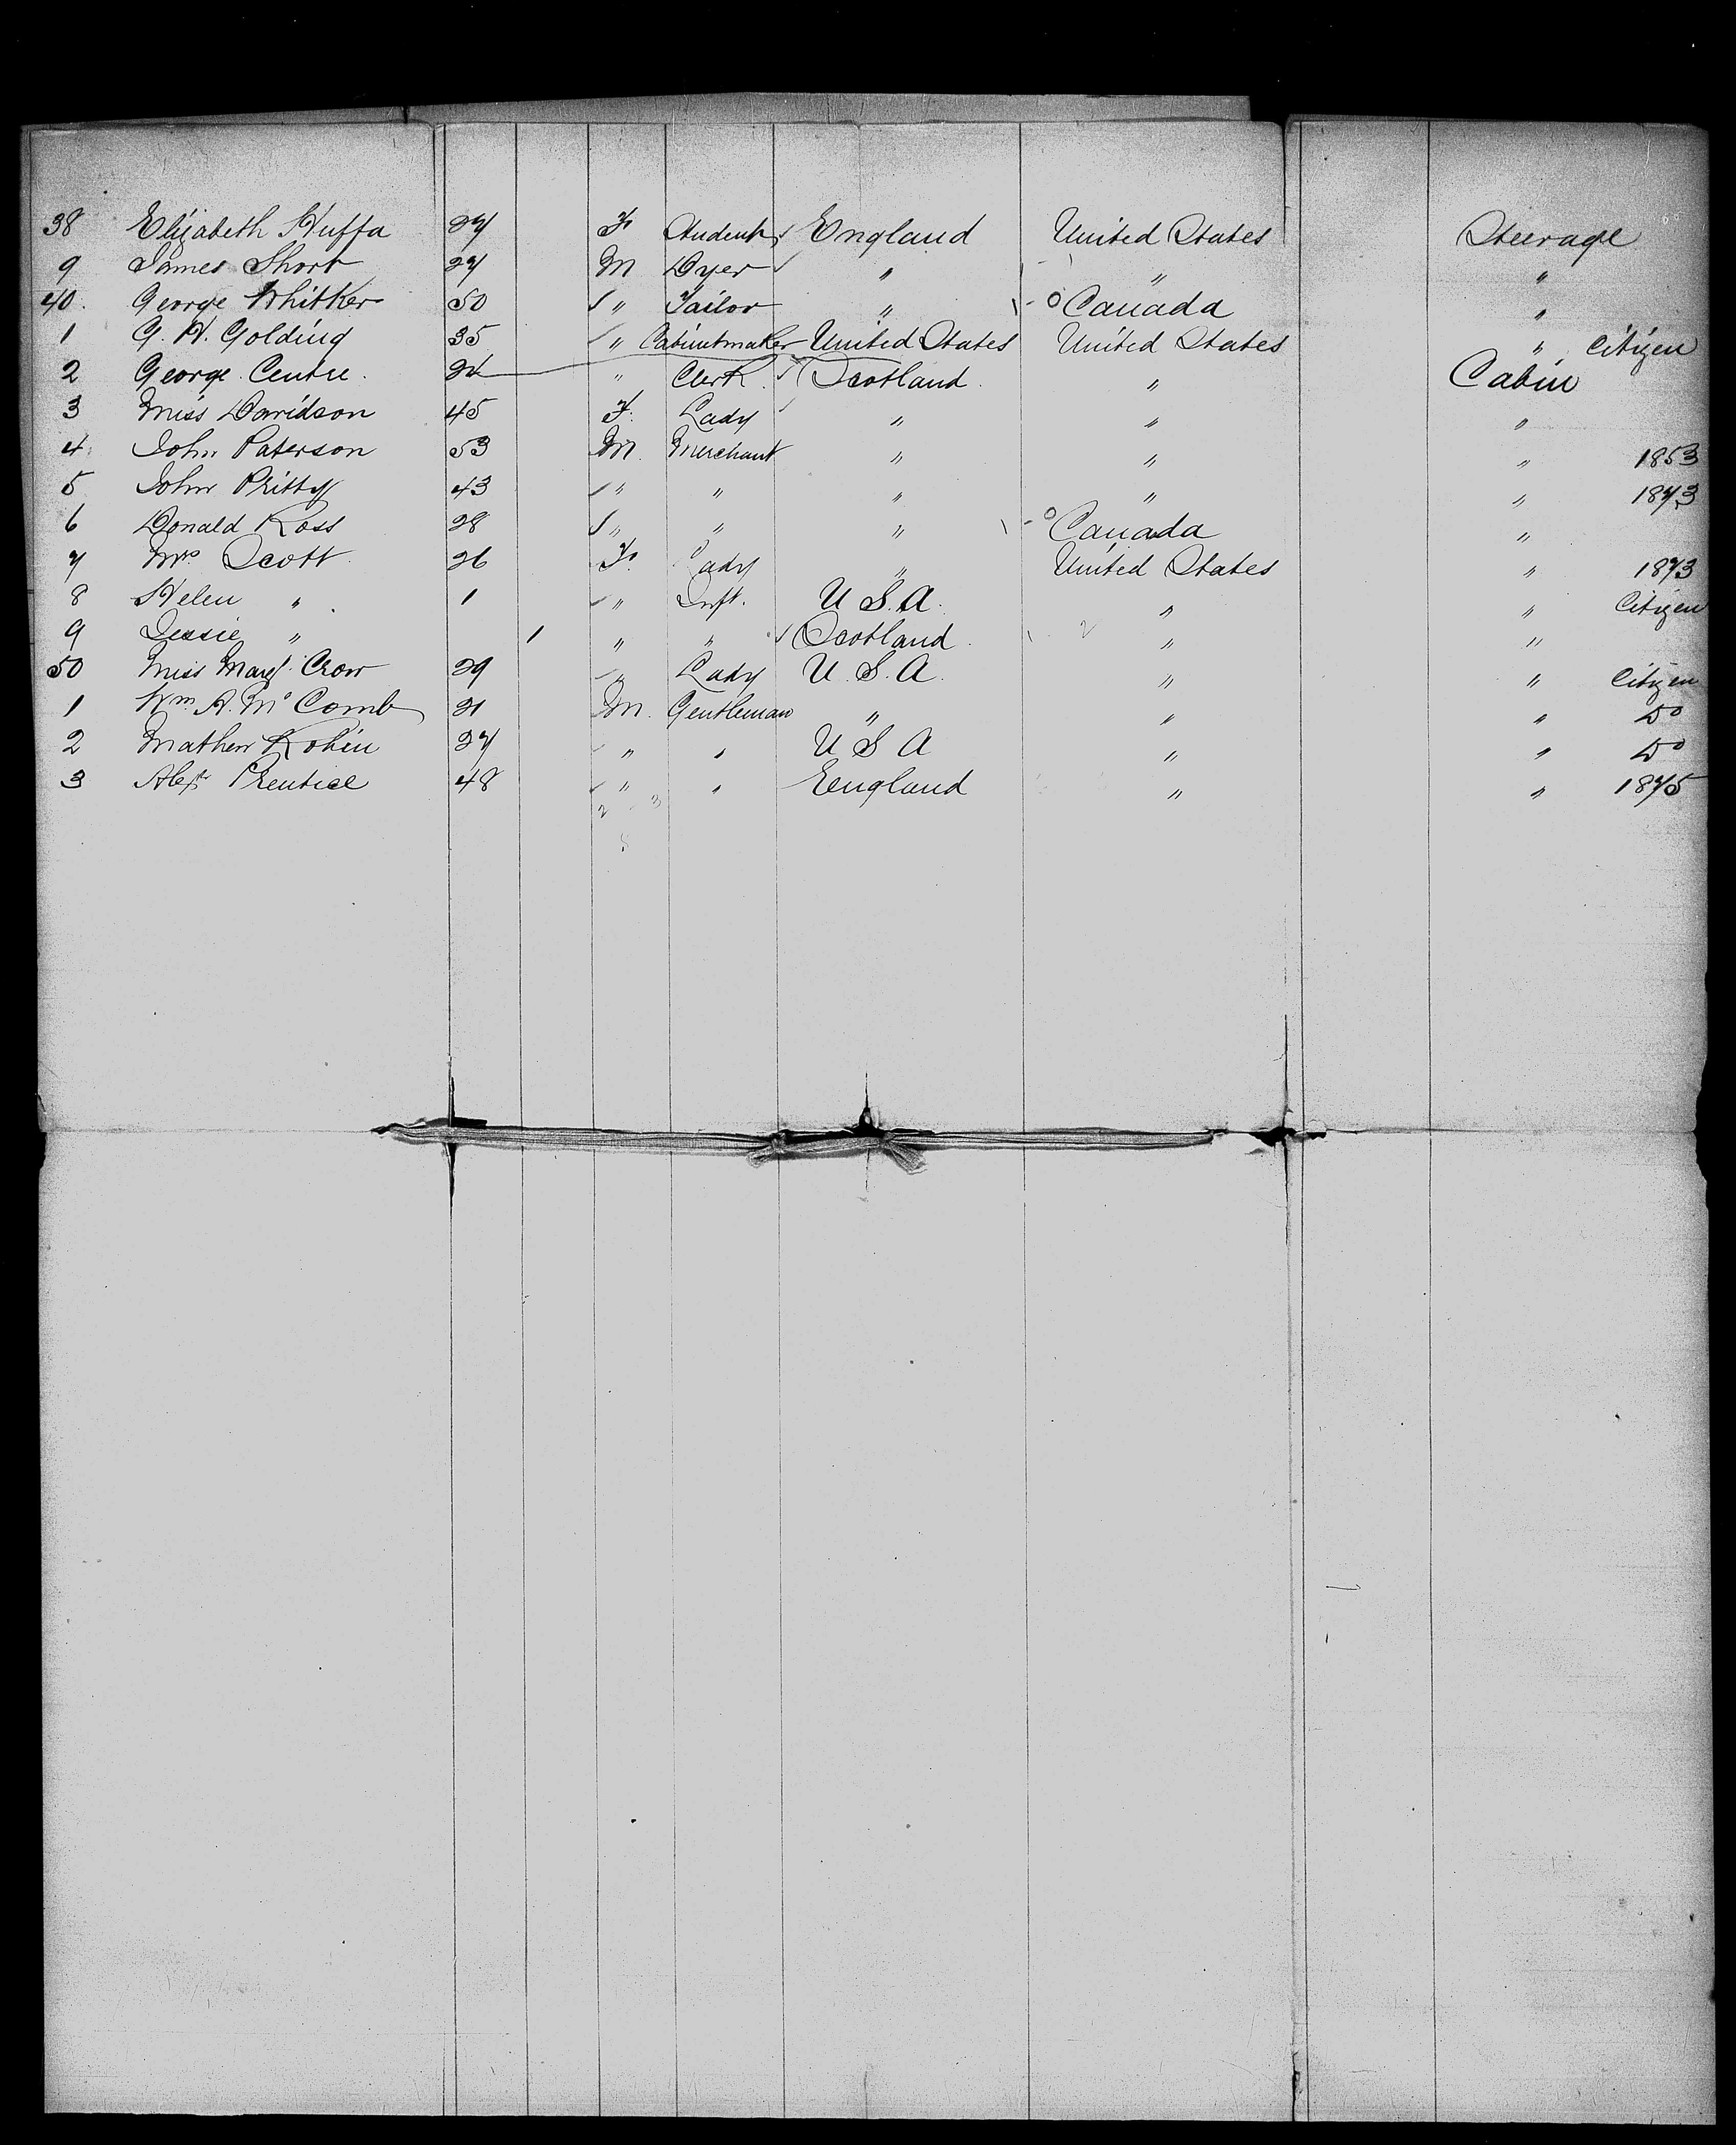 38 Elizabeth Huffa 27 F. Student England United States Steerage
9 James Short 27 M Dyer " " "
40. George Whitker 50 " Tailor " Canada "
1 G. H. Golding 35 " Cabinetmaker United States United States " Citizen
2 George Centre. 24 " Clerk. Scotland. " Cabin
3 Miss Davidson 45 F. Lady " " "
4. John Paterson 53 M. Merchant " " " 1853
5 John Pritty 43 " " " " " 1873
6 Donald Ross 28 " " " Canada "
7 Mrs Scott 26 F. Lady " United States " 1873
8 Helen " 1 " Inft. U.S.A. " " Citizen
9 Jessie " 1 " " Scotland. " "
50 Miss Margt. Crow 29 " Lady U.S.A. " " Citizen
1 Wm. A. McComb 21 M. Gentleman " " " Do
2 Mathew Robin 27 " " U S A " " Do
3 Alexr Prentice 48 " " Eengland " " 1875